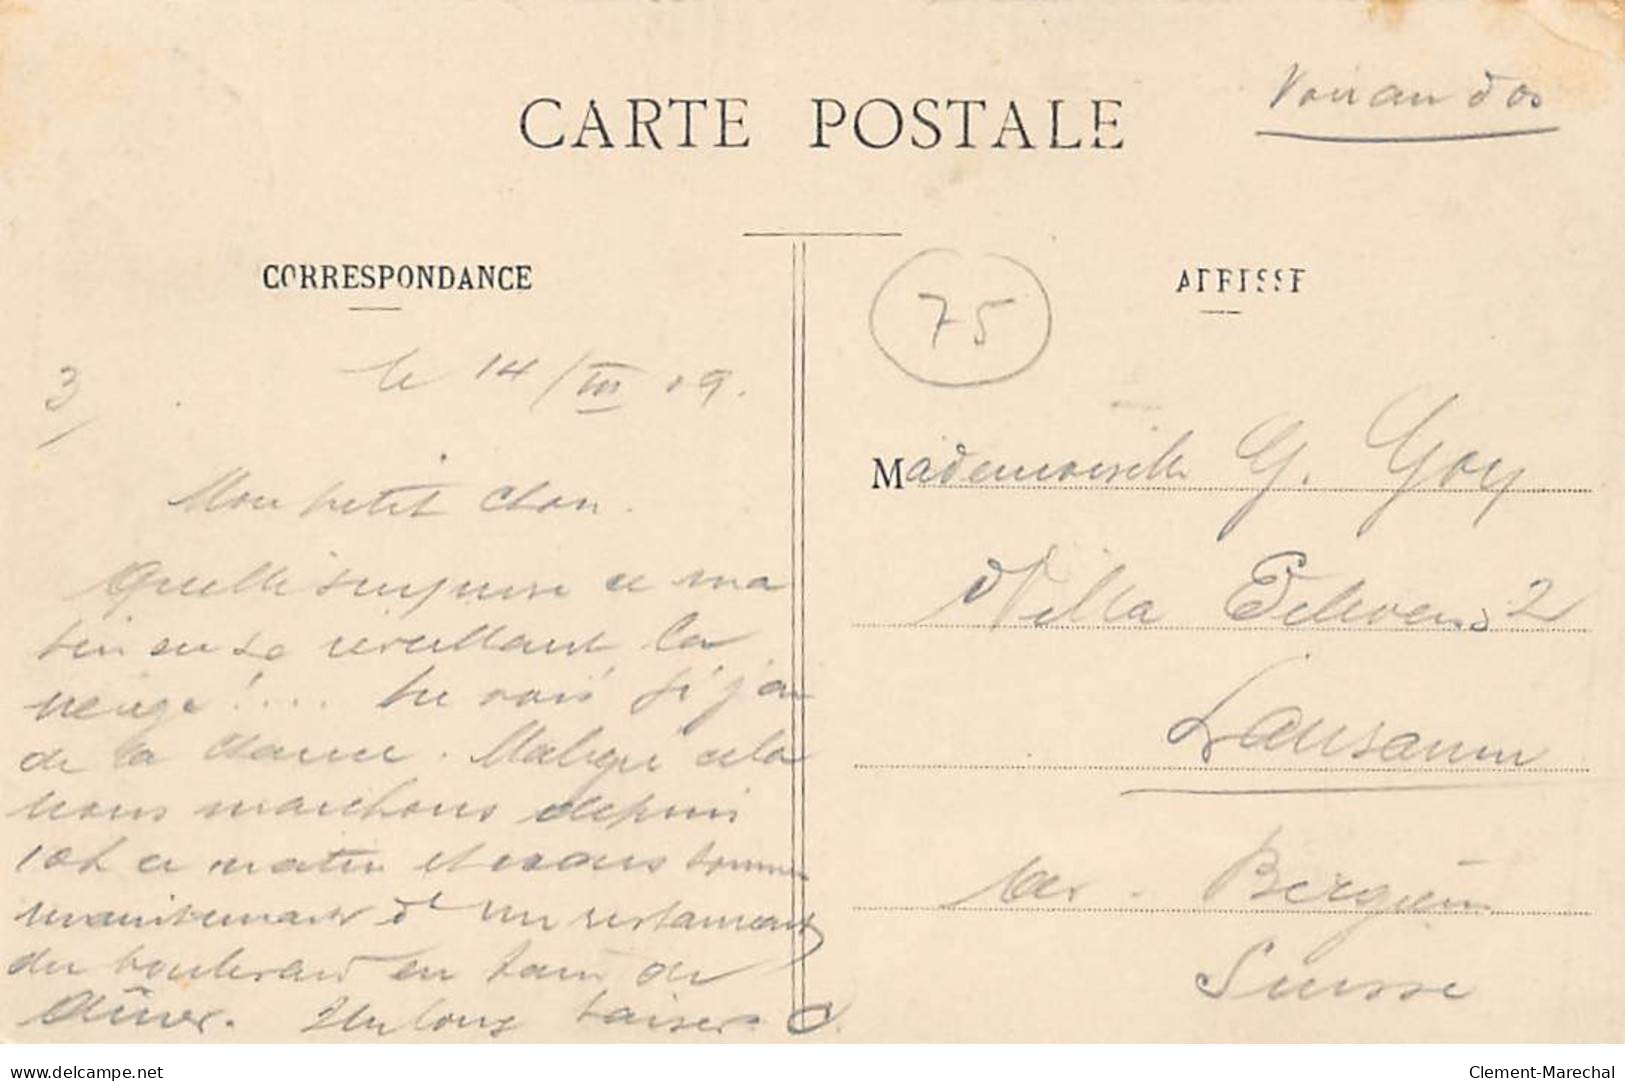 Voir au dos
CARTE POSTALE
CORRESPONDANCE
ADRESSE
75
3
le 14/III 09.
Mon petit chou.
Quelle surprise ce ma
tin en se réveillant la
neige!... tu vois si j'ai
de la chance. Malgré cela
nous marchons depuis
10h ce matin et nous sommes
maintenant dt un restaurant
du boulevard en train de
dîner. Un long baiser. C.
Mademoiselle G. Goy
Villa 2
Lausanne
Av. Bergières
Suisse
delcampe.net
Clement-Marechal